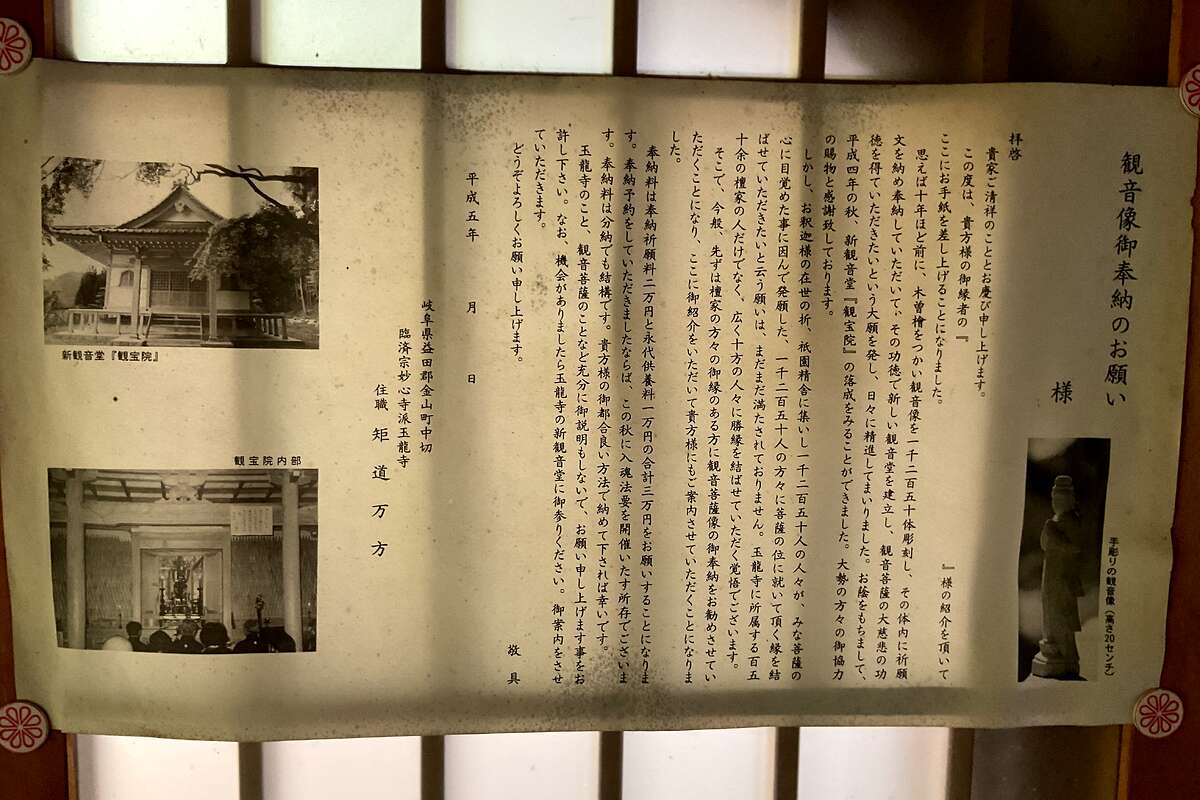 観音像御奉納のお願い
様
手彫りの観音像（高さ20センチ）
拝啓
貴家ご清祥のこととお慶び申し上げます。
この度は、貴方様の御縁者の『　　　　　　　　　　』様の紹介を頂いて
ここにお手紙を差し上げることになりました。
思えば十年ほど前に、木曽檜をつかい観音像を一千二百五十体彫刻し、その体内に祈願
文を納め奉納していただいて、その功徳で新しい観音堂を建立し、観音菩薩の大慈悲の功
徳を得ていただきたいという大願を発し、日々に精進してまいりました。お蔭をもちまして、
平成四年の秋、新観音堂『観宝院』の落成をみることができました。大勢の方々の御協力
の賜物と感謝致しております。
しかし、お釈迦様の在世の折、祇園精舎に集いし一千二百五十人の人々が、みな菩薩の
心に目覚めた事に因んで発願した、一千二百五十人の方々に菩薩の位に就いて頂く縁を結
ばせていただきたいと云う願いは、まだまだ満たされておりません。玉龍寺に所属する百五
十余の檀家の人だけでなく、広く十方の人々に勝縁を結ばせていただく覚悟でございます。
そこで、今般、先ずは檀家の方々の御縁のある方に観音菩薩像の御奉納をお勧めさせてい
ただくことになり、ここに御紹介をいただいて貴方様にもご案内させていただくことになりま
した。
奉納料は奉納祈願料二万円と永代供養料一万円の合計三万円をお願いすることになりま
す。奉納予約をしていただきましたならば、この秋に入魂法要を開催いたす所存でございま
す。奉納料は分納でも結構です。貴方様の御都合良い方法で納めて下されば幸いです。
玉龍寺のこと、観音菩薩のことなど充分に御説明もしないで、お願い申し上げます事をお
許し下さい。なお、機会がありましたら玉龍寺の新観音堂に御参りください。御案内をさせ
ていただきます。
どうぞよろしくお願い申し上げます。
敬具
平成五年　月　日
岐阜県益田郡金山町中切
臨済宗妙心寺派玉龍寺
住職　矩道万方
新観音堂『観宝院』
観宝院内部